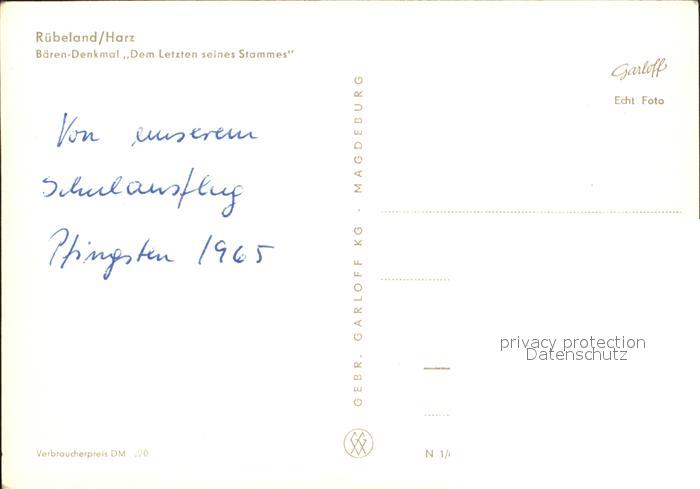 Rübeland/Harz
Bären-Denkmal „Dem Letzten seines Stammes"
Von unserem
Schulausflug
Pfingsten 1965
Verbraucherpreis DM -,20
GEBR. GARLOFF KG · MAGDEBURG
Garloff
Echt Foto
privacy protection
Datenschutz
N 1/